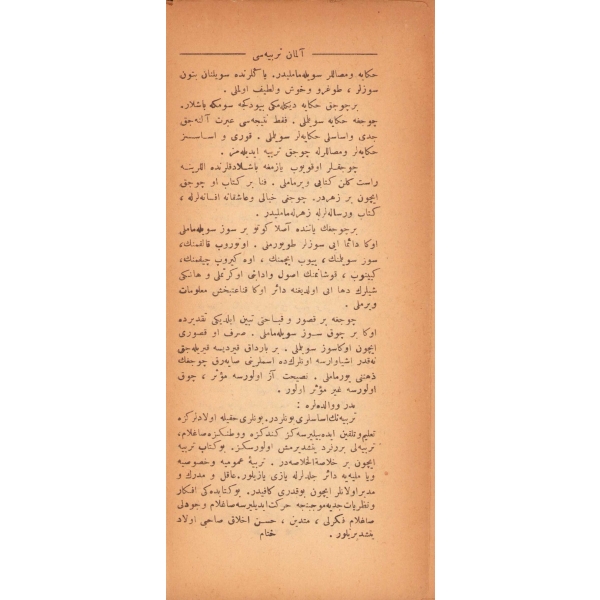 آلمان تربیه‌سی
حكایه و مصاللر سویله‌ماملیدر. یا كلرنده سویلنان بتون
سوزلر ، طوغرو وخوش ولطیف اولملی .
برچوجق حكایه دیكله‌مكی بیودكجه سومكه باشلار.
چوجغه حكایه سویلملی . فقط نتیجه‌سی عبرت آلنه‌جق
جدی واساسلی حكایه‌لر سویلملی . قوری و اساسسز
حكایه‌لر ومصاللرله چوجق تربیه ایدیله‌مز .
چوجقلر اوقویوب یازمغه باشلادقلرنده اللرینه
راست كلن كتابی ویرماملی . فنا بر كتاب او چوجق
ایچون بر زهردر. چوجغی خیالی وعاشقانه افسانه‌لرله ،
كتاب ورساله‌لرله زهرله‌ماملیدر .
برچوجغك یاننده آصلا كوتو بر سوز سویله‌ماملی
اوكا دائما ایی سوزلر طویورملی . اوتوروب قالقمنك،
سوز سویلمنك ، یییوب ایچمنك ، اوه كیروب چیقمنك،
كیینوب ، قوشانمنك اصول وادابنی اوكرتملی و هانكی
شیلرك دها ایی اولدیغنه دائر اوكا قناعتبخش معلومات
ویرملی .
چوجغه بر قصور و قباحتی تبین ایلدیكی تقدیرده
اوكا بر چوق سوز سویله‌ماملی . صرف او قصوری
ایچون اوكاسوز سویلملی . بر بارداق قیردیسه قیریله‌جق
نه‌قدر اشیاوارسه اونلرك‌ده اسملرینی صایه‌رق چوجغك
ذهننی یورماملی . نصیحت آز اولورسه مؤثر ، چوق
اولورسه غیر مؤثر اولور .
پدر ووالده‌لره :
تربیه‌نك‌اساسلری بونلردر. بونلری حقیله اولادلركزه
تعلیم‌وتلقین ایده‌بیلیرسه‌كز كندكزه ووطنكزه صاغلام،
تربیه‌لی بررفرد یتشدیرمش اولورسكز. بوكتاب تربیه
ایچون بر خلاصةالخلاصه‌در . تربیۀ عمومیه وخصوصیه
ویا ملیه‌یه دائر جلدلرله یازی یازیلور. عاقل و مدرك و
مدبر اولانلر ایچون بوقدری كافیدر. بوكتابده‌كی افكار
و نظریات جدیه‌موجبنجه حركت‌ایدیلیرسه صاغلام وجودلی
صاغلام فكرلی ، متدین ، حسن اخلاق صاحبی اولاد
یتشدیریلور .
ختام